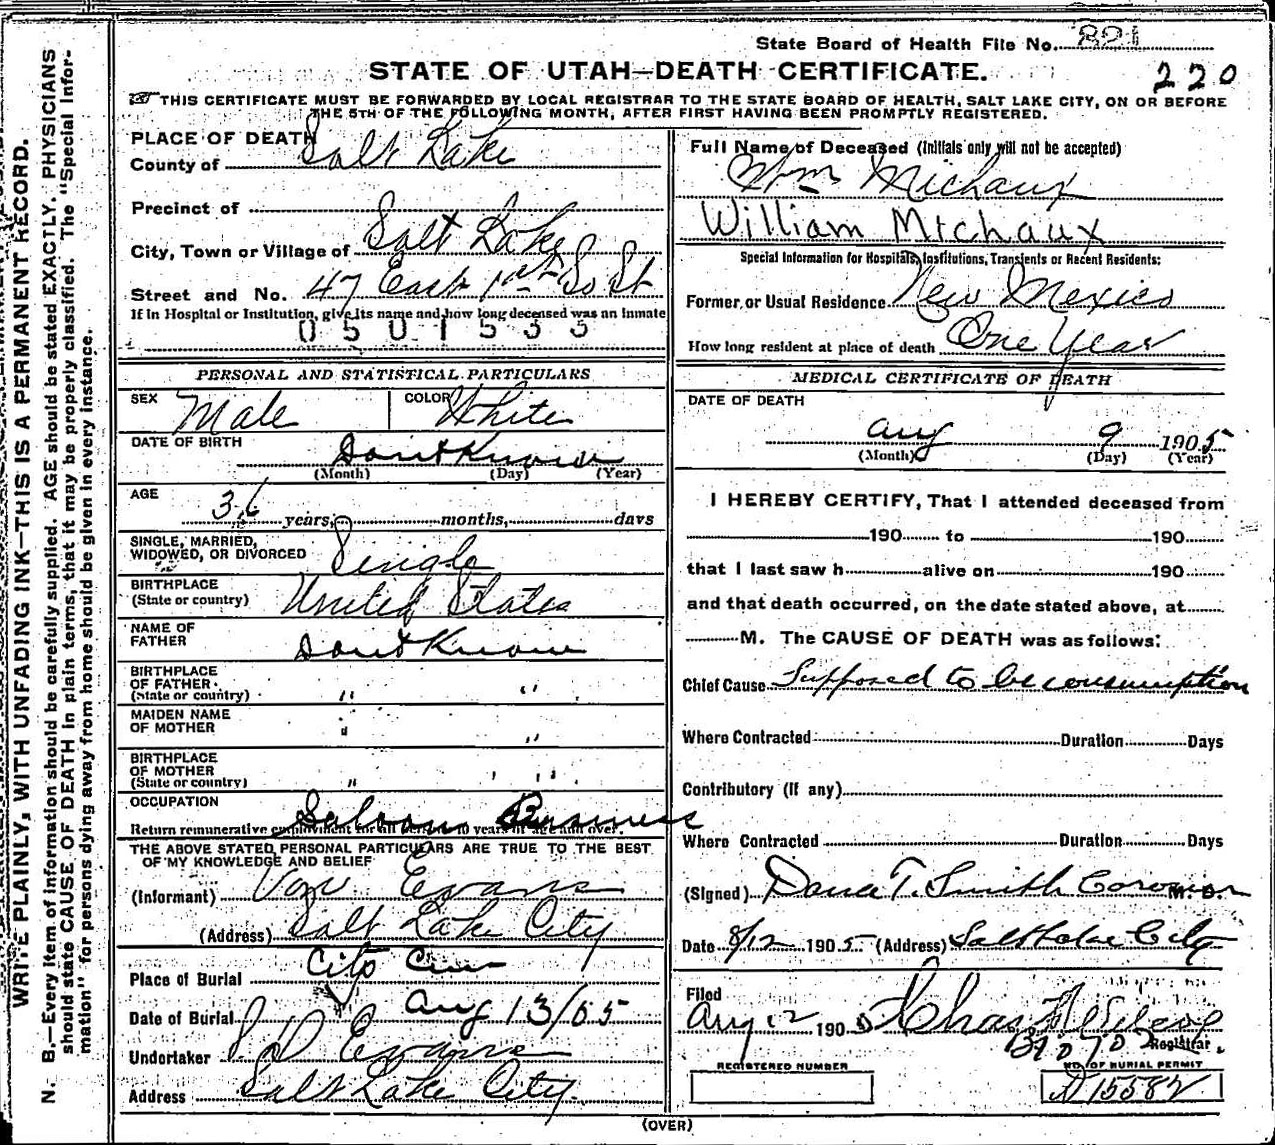 State Board of Health File No. 821
STATE OF UTAH—DEATH CERTIFICATE.
220
THIS CERTIFICATE MUST BE FORWARDED BY LOCAL REGISTRAR TO THE STATE BOARD OF HEALTH, SALT LAKE CITY, ON OR BEFORE
THE 5TH OF THE FOLLOWING MONTH, AFTER FIRST HAVING BEEN PROMPTLY REGISTERED.
WRITE PLAINLY, WITH UNFADING INK—THIS IS A PERMANENT RECORD.
N. B.—Every item of information should be carefully supplied. AGE should be stated EXACTLY. PHYSICIANS
should state CAUSE OF DEATH in plain terms, that it may be properly classified. The "Special Infor-
mation" for persons dying away from home should be given in every instance.
PLACE OF DEATH
County of Salt Lake
Precinct of
City, Town or Village of Salt Lake
Street and No. 47 East 1st So St
If in Hospital or Institution, give its name and how long deceased was an inmate
0501533
PERSONAL AND STATISTICAL PARTICULARS
SEX Male COLOR White
DATE OF BIRTH Dont Know
(Month) (Day) (Year)
AGE
36 years, months, days
SINGLE, MARRIED,
WIDOWED, OR DIVORCED Single
BIRTHPLACE
(State or country) United States
NAME OF
FATHER Dont Know
BIRTHPLACE
OF FATHER
(State or country) " "
MAIDEN NAME
OF MOTHER " "
BIRTHPLACE
OF MOTHER
(State or country) " "
OCCUPATION Saloon Business
Return remunerative employment for all persons 10 years of age and over.
THE ABOVE STATED PERSONAL PARTICULARS ARE TRUE TO THE BEST
OF MY KNOWLEDGE AND BELIEF
(Informant) Evans
(Address) Salt Lake City
Place of Burial City Cem
Date of Burial Aug 13/05
Undertaker Evans
Address Salt Lake City
Full Name of Deceased (Initials only will not be accepted)
Wm Michaux
William Michaux
Special Information for Hospitals, Institutions, Transients or Recent Residents:
Former or Usual Residence New Mexico
How long resident at place of death One Year
MEDICAL CERTIFICATE OF DEATH
DATE OF DEATH
Aug 9 1905
(Month) (Day) (Year)
I HEREBY CERTIFY, That I attended deceased from
190 to 190
that I last saw h alive on 190
and that death occurred, on the date stated above, at
M. The CAUSE OF DEATH was as follows:
Chief Cause Supposed to be consumption
Where Contracted Duration Days
Contributory (If any)
Where Contracted Duration Days
(Signed) Dana T. Smith Coroner M. D.
Date 8/12 1905 (Address) Salt Lake City
Filed
Aug 12 1905 Chas
Registrar.
REGISTERED NUMBER
NO. OF BURIAL PERMIT
D 15582
(OVER)